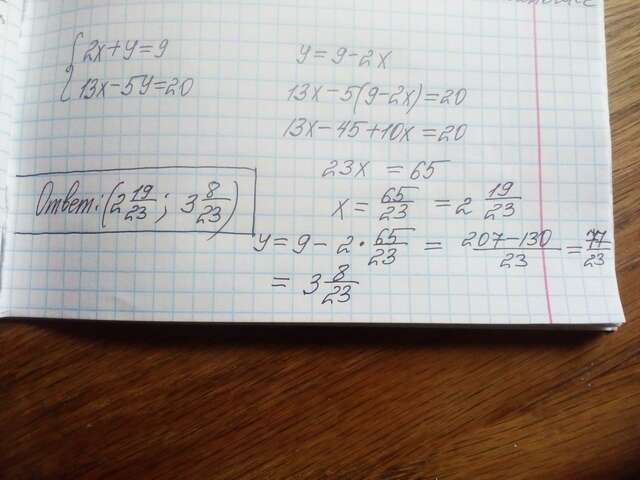 {2x+y=9
13x-5y=20
y=9-2x
13x-5(9-2x)=20
13x-45+10x=20
23x=65
x=65/23=2 19/23
y=9-2·65/23=(207-130)/23=77/23
=3 8/23
Ответ:(2 19/23; 3 8/23)